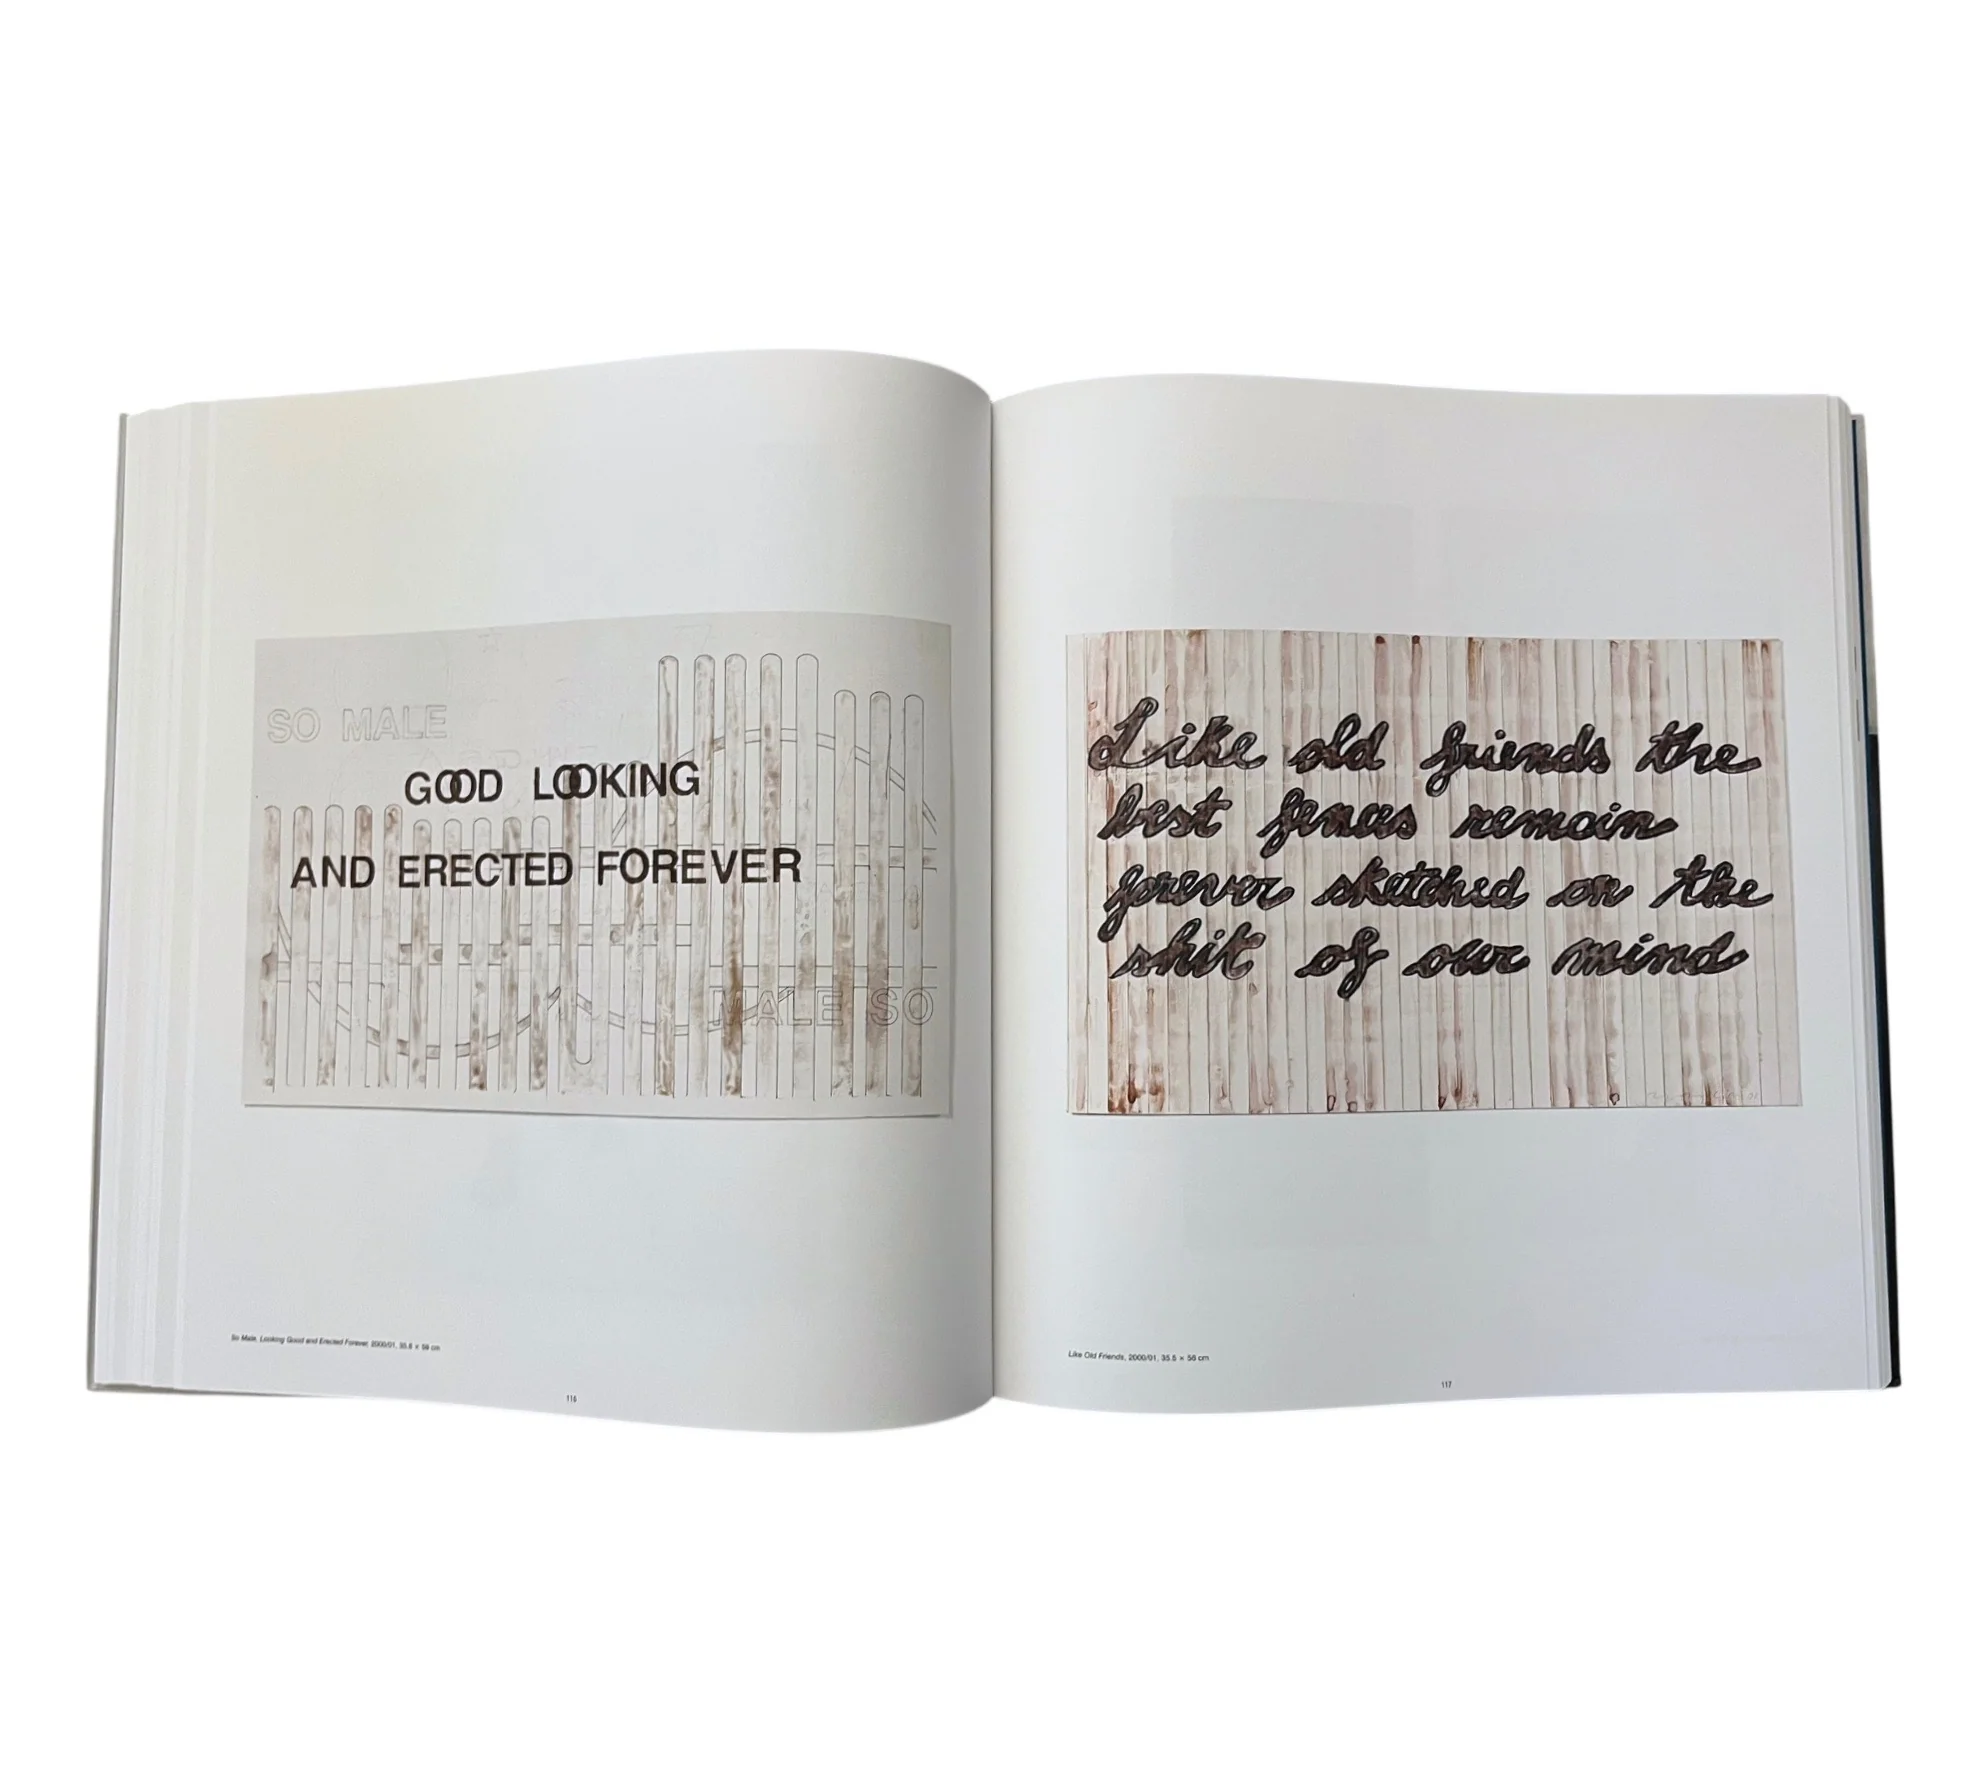 SO MALE
GOOD LOOKING
AND ERECTED FOREVER
MALE SO
So Male, Looking Good and Erected Forever, 2000/01, 35.5 × 56 cm
116
Like old friends the
best fences remain
forever sketched on the
shit of our mind
Like Old Friends, 2000/01, 35.5 × 56 cm
117